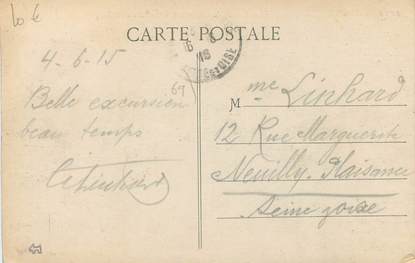 10 €
CARTE POSTALE
4-6-15
Belle excursion
beau temps
Mme Linhard
12 Rue Marguerite
Neuilly-Plaisance
Seine & Oise